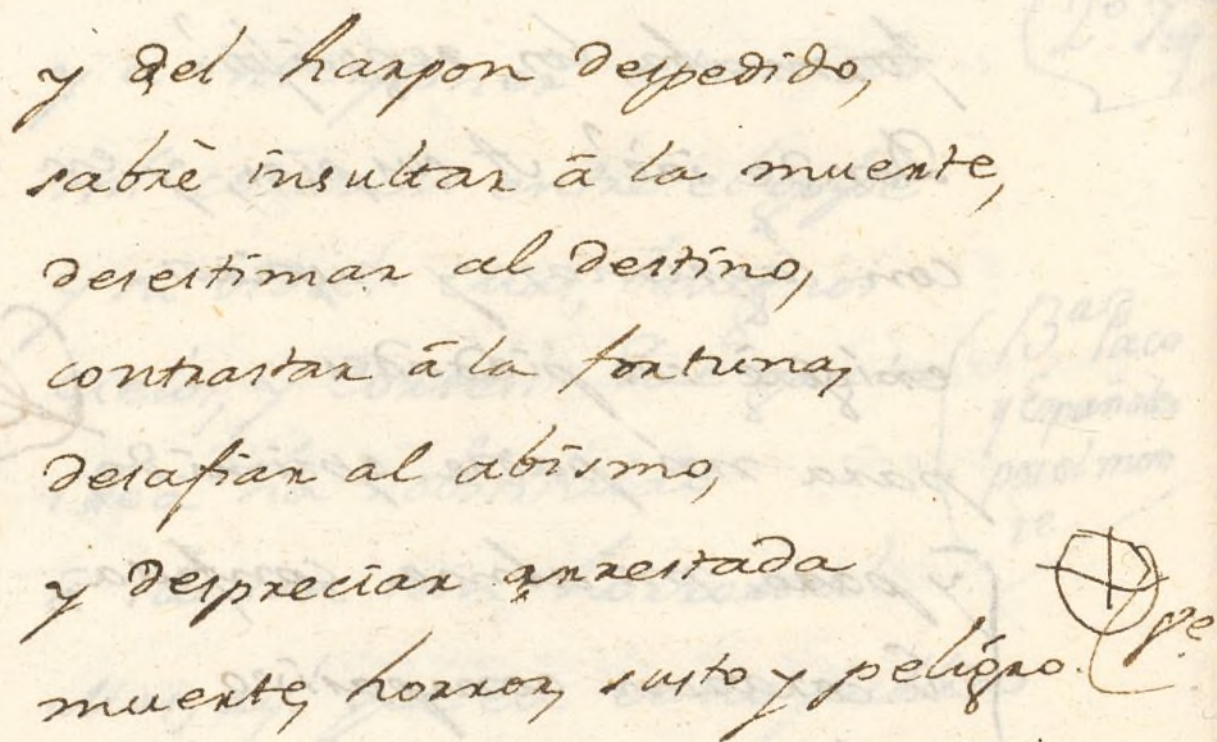 y del harpon despedido,
sabrè insultar â la muerte,
desestimar al destino,
contrastar â la fortuna,
desafiar al abismo,
y despreciar arrestada
muerte, horror, susto y peligro. ve.